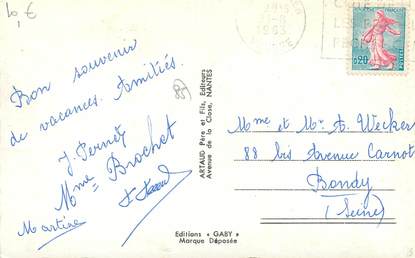 10 €
PARIS
1963
FRANÇAISE
0,20
POSTES
Bon souvenir
de vacances. Amitiés.
J. Pernet
Mme Brochet
Martine
85
ARTAUD Père et Fils, Editeurs
Avenue de la Close, NANTES
Mme et Mr A. Wecker
88 bis Avenue Carnot
Bondy
(Seine)
Editions « GABY »
Marque Déposée